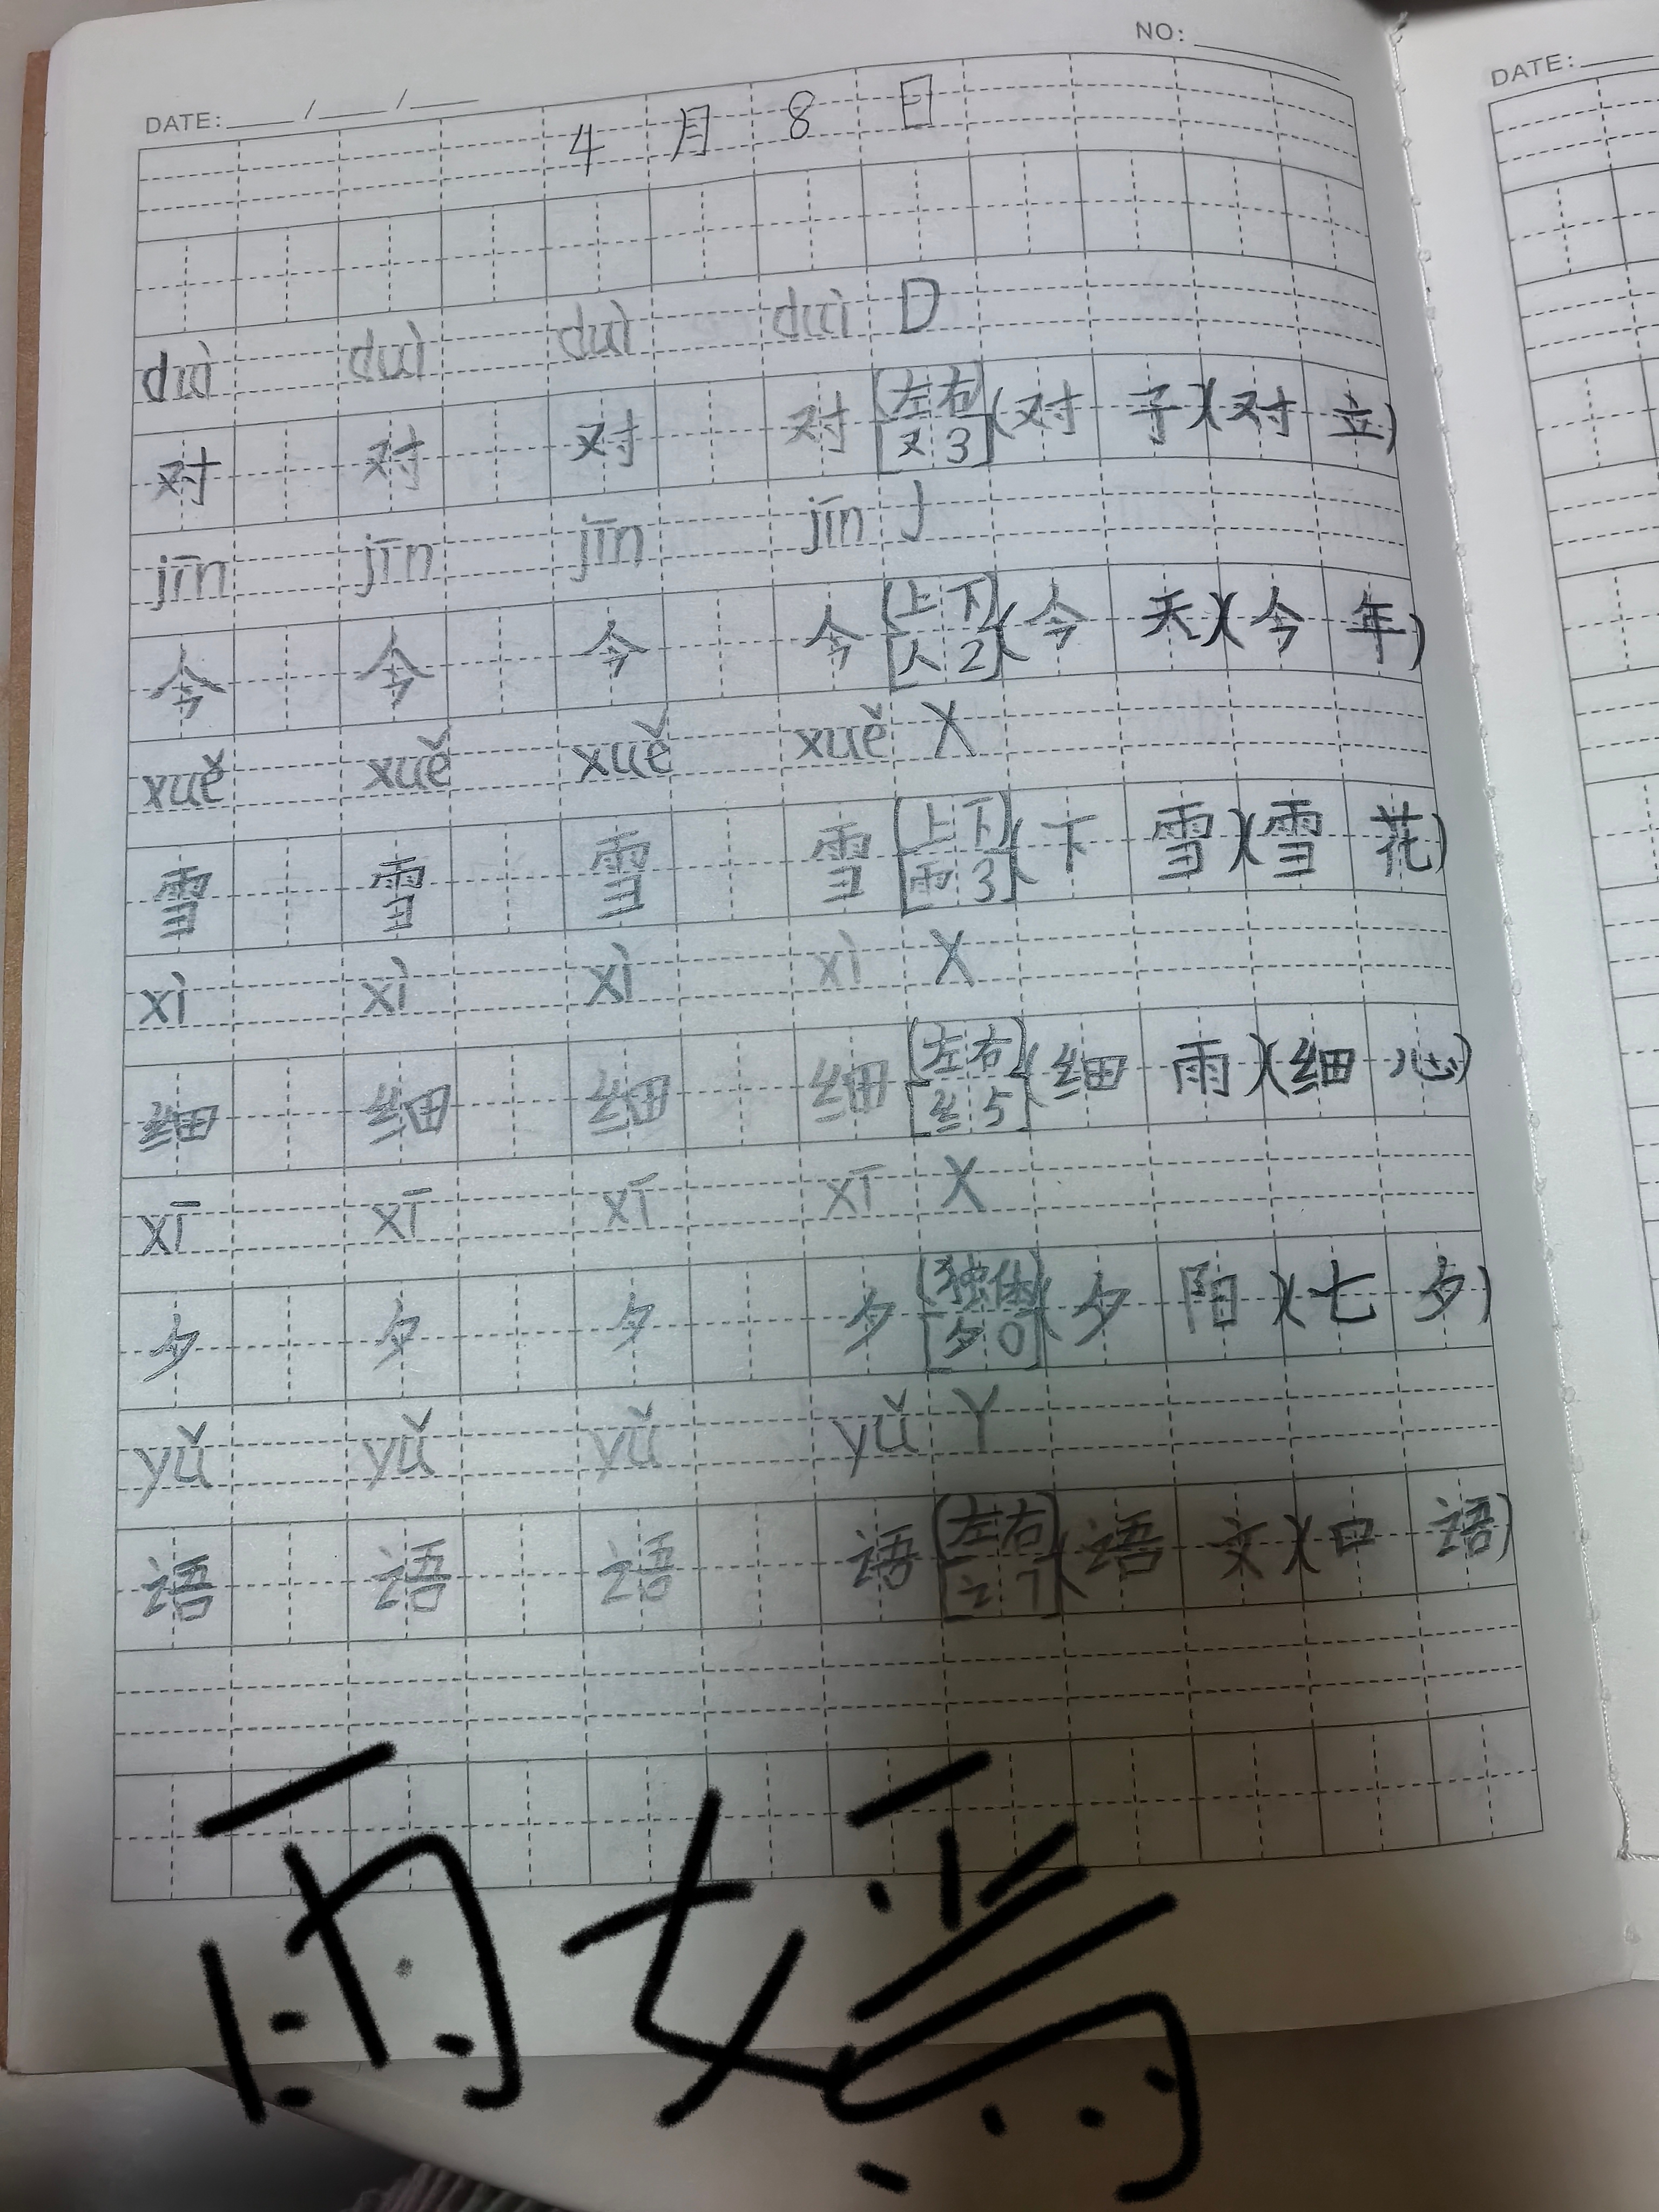 NO:
DATE: / /
DATE:
4 月 8 日
duì duì duì duì D
对 对 对 对 [左右 又3] (对子)(对立)
jīn jīn jīn jīn J
今 今 今 今 [上下 人2] (今天)(今年)
xuě xuě xuě xuě X
雪 雪 雪 雪 [上下 雨3] (下雪)(雪花)
xì xì xì xì X
细 细 细 细 [左右 纟5] (细雨)(细心)
xī xī xī xī X
夕 夕 夕 夕 [独体 夕0] (夕阳)(七夕)
yǔ yǔ yǔ yǔ Y
语 语 语 语 [左右 讠7] (语文)(口语)
雨嫣